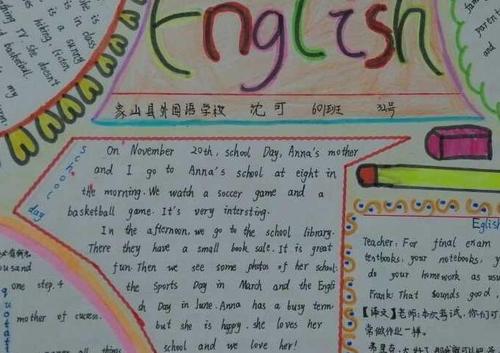 English
象山县外国语学校 沈可 601班 32号
she is
is in class
is a sunny
hiking, listen
TV she doesn't
basketball.
my
School day
On November 20th, school Day, Anna's mother
and I go to Anna's school at eight in
the morning. We watch a soccer game and a
basketball game. It's very intersting.
In the afternoon, we go to the school library.
There they have a small book sale. It is great
fun. Then we see some photos of her school:
the Sports Day in March and the Engli
sh Day in June. Anna has a busy term,
but she is happy. she loves her
school and we love her!
ousand
one step.4
mother of success.
quotat
all things
Eglish
Teacher: For final exam
textbooks, your notebooks, y
do your homework as usu
Frank: That sounds good.
【译文】老师:本次考试,你们可
常做作业一样。